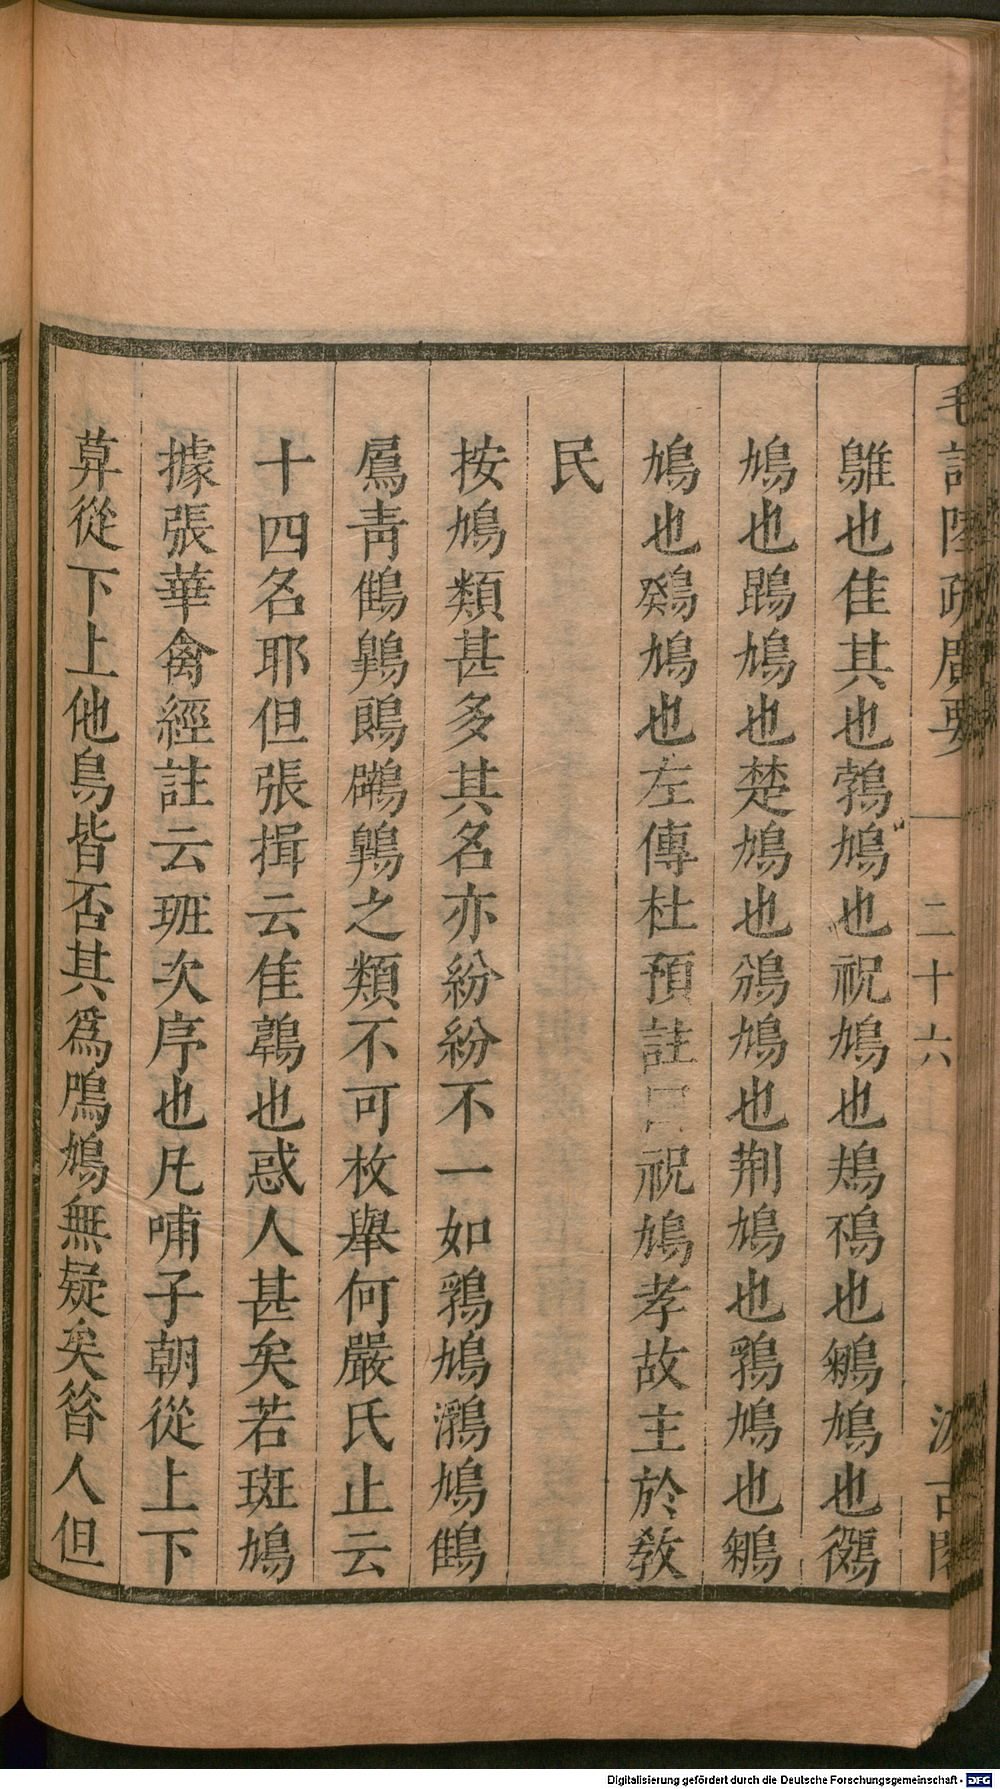 毛詩陸疏廣要 一 二十六 汲古閣
鵻也隹其也鵓鳩也祝鳩也鴂鳩也鵴鳩也
鳩也鶌鳩也楚鳩也鳩也荆鳩也鶉鳩也鵴
鳩也鶏鳩也左傳杜預註曰祝鳩孝故主於敎
民
按鳩類甚多其名亦紛紛不一如鶉鳩鳩鶴
鳸靑鶴鶉之類不可枚舉何嚴氏止云
十四名耶但張揖云隹鶉也惑人甚矣若斑鳩
據張華禽經註云班次序也凡哺子朝從上下
莫從下上他鳥皆否其爲鳲鳩無疑矣昝人但
Digitalisierung gefördert durch die Deutsche Forschungsgemeinschaft - DFG